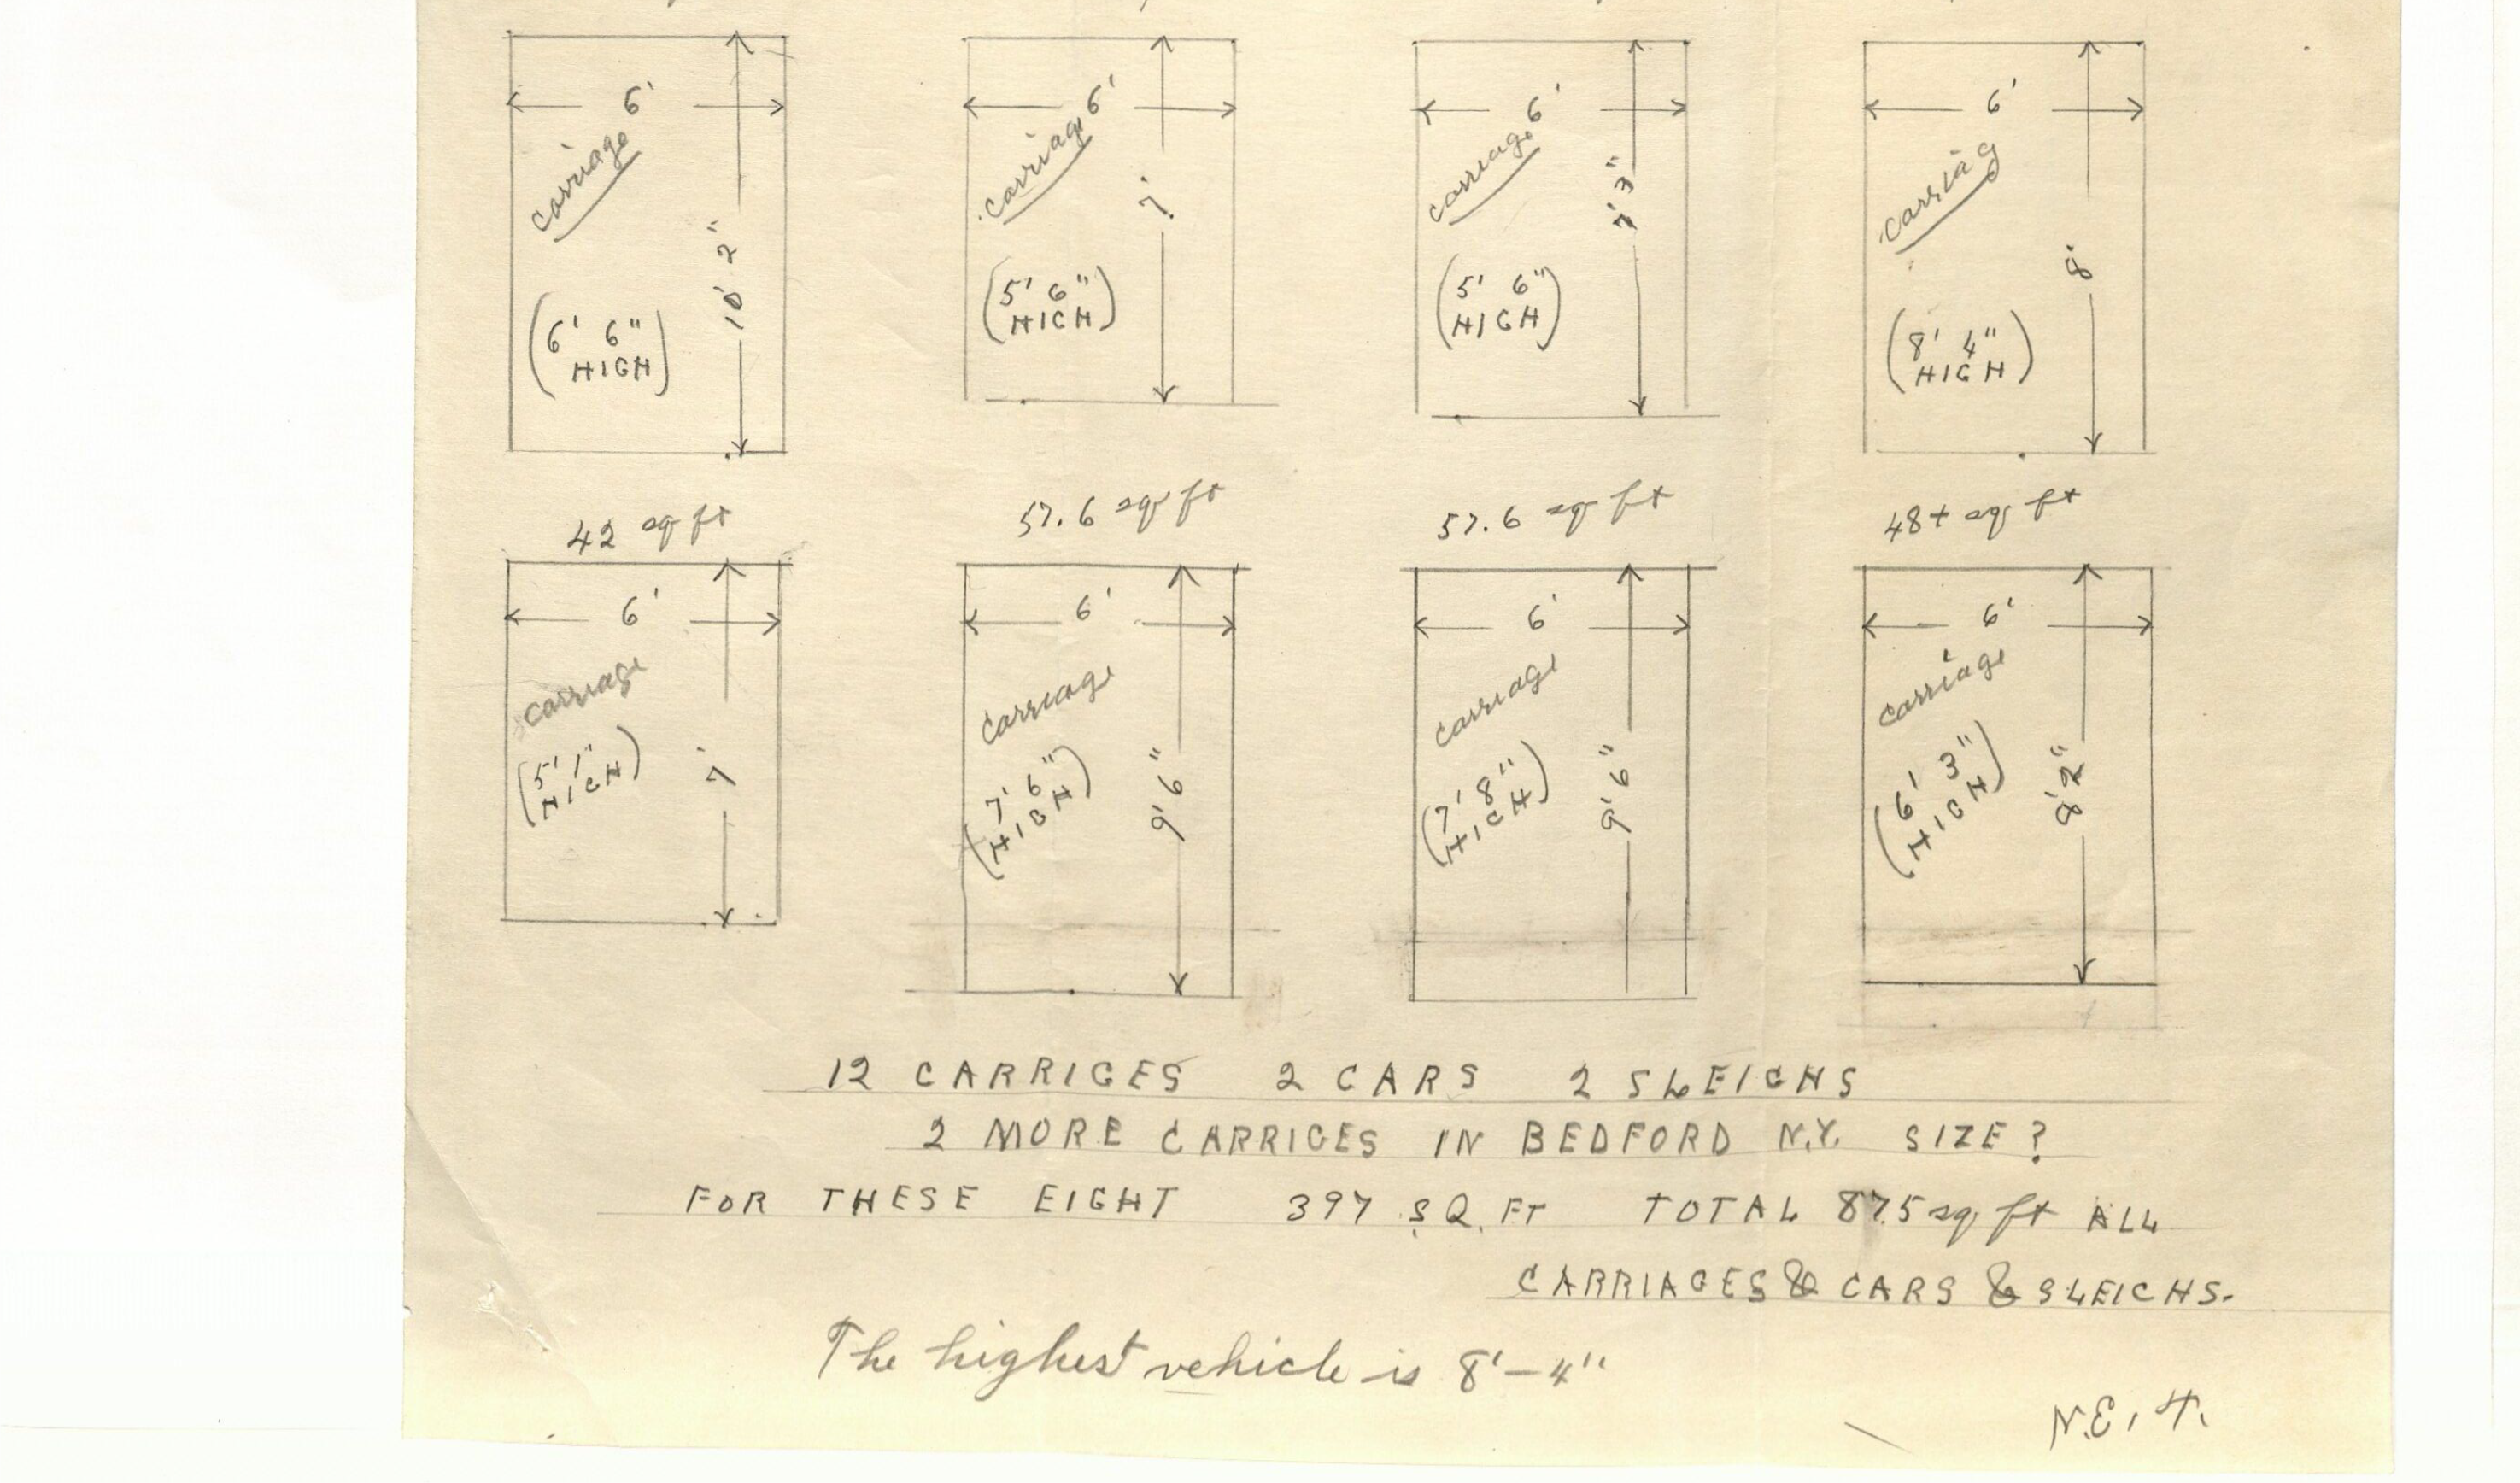 6' 6' 6' 6'
carriage carriage carriage carriag
10' 2" 7' 7' 3" 8'
(6' 6" (5' 6" (5' 6" (8' 4"
HIGH) HIGH) HIGH) HIGH)
42 sq ft 57.6 sq ft 57.6 sq ft 48+ sq ft
6' 6' 6' 6'
carriage carriage carriage carriage
(5' 1" (7' 6" (7' 8" (6' 3"
HIGH) HIGH) HIGH) HIGH)
7' 9' 6" 9' 6" 8' 2"
12 CARRIGES 2 CARS 2 SLEIGHS
2 MORE CARRIGES IN BEDFORD N.Y. SIZE ?
FOR THESE EIGHT 397 SQ. FT TOTAL 875 sq ft ALL
CARRIAGES & CARS & SLEIGHS.
The highest vehicle is 8'-4"